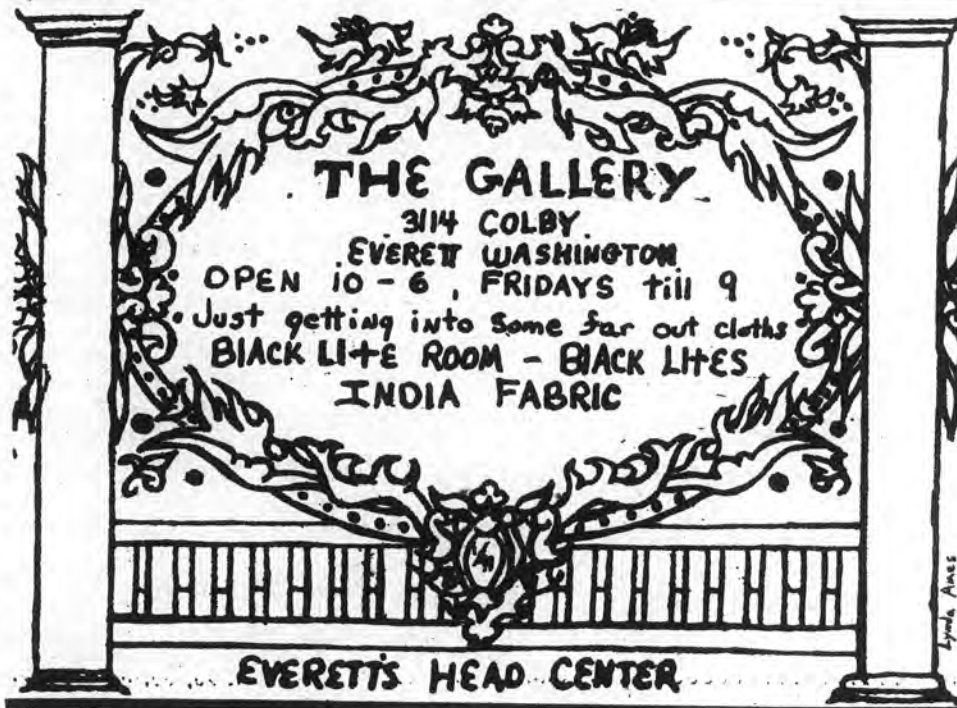 THE GALLERY
3114 COLBY
EVERETT WASHINGTON
OPEN 10 - 6, FRIDAYS till 9
Just getting into some far out cloths
BlACK LItE ROOM - BlACK LItES
INDIA FABRIC
EVERETT'S HEAD CENTER
Lynda Ames